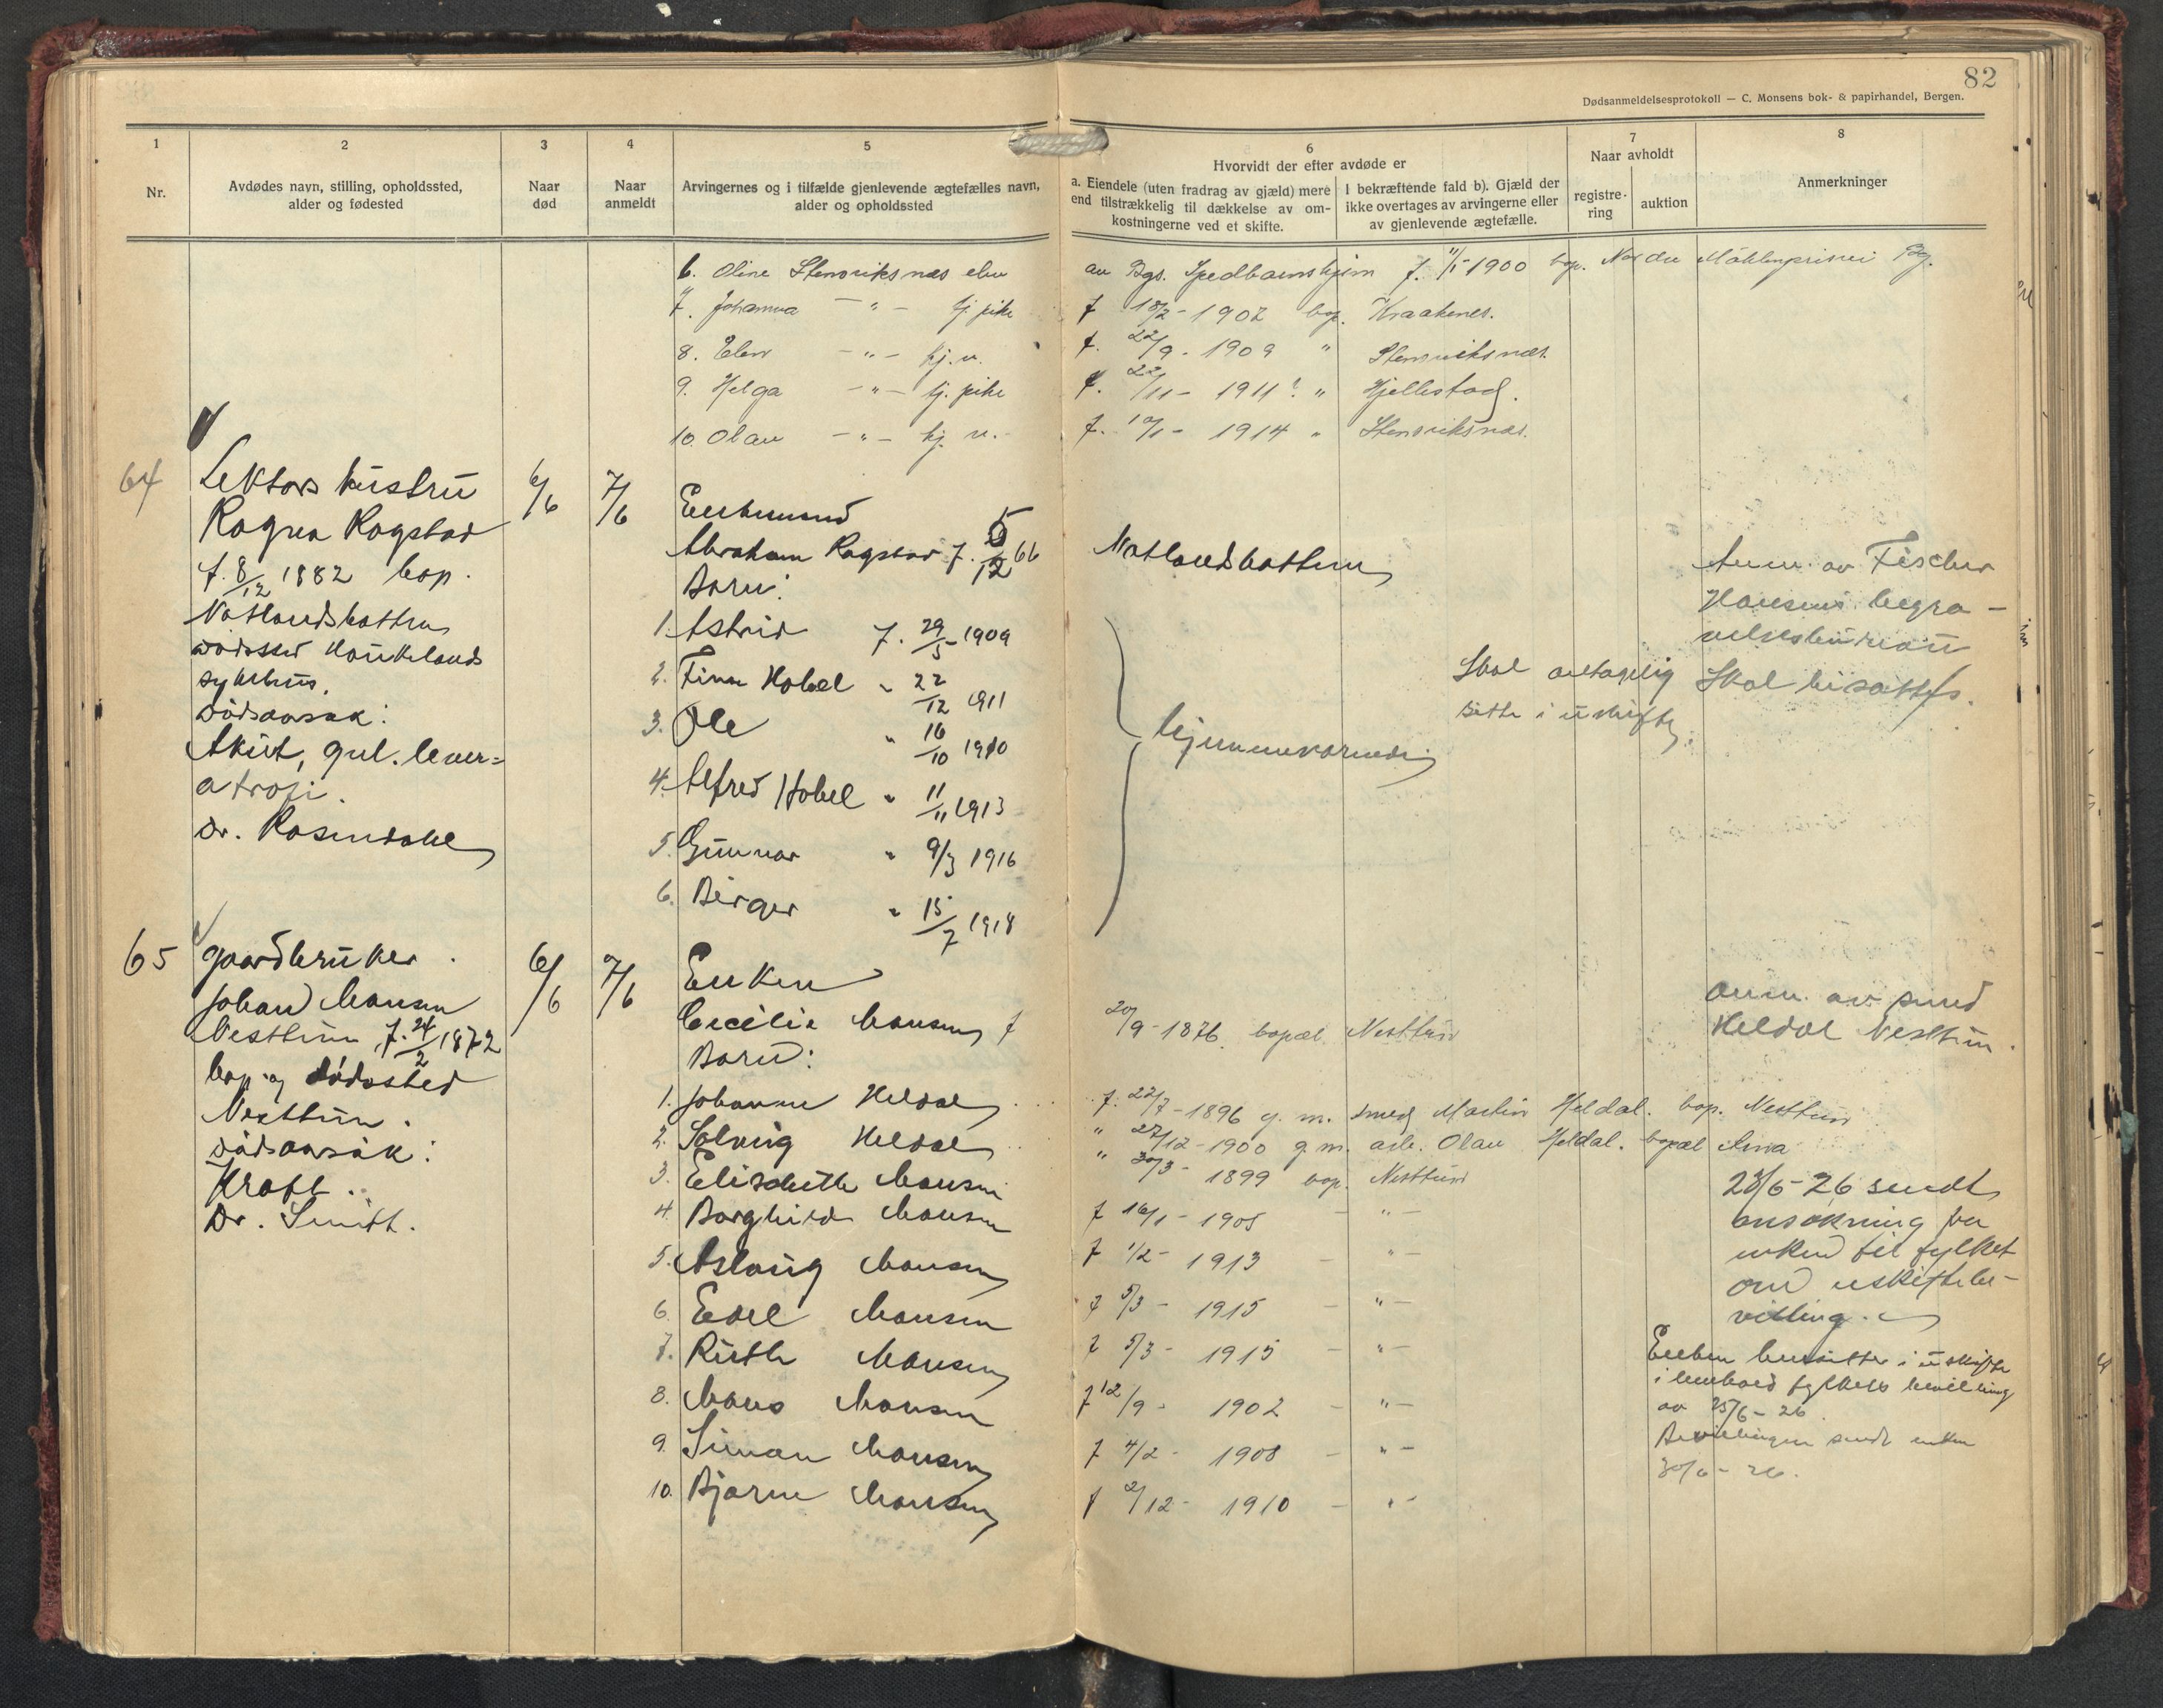 82
Dødsanmeldelsesprotokoll — C. Monsens bok- & papirhandel, Bergen.
1 2 3 4 5 6 7 8
Nr.
Avdødes navn, stilling, opholdssted,
alder og fødested
Naar
død
Naar
anmeldt
Arvingernes og i tilfælde gjenlevende ægtefælles navn,
alder og opholdssted
Hvorvidt der efter avdøde er
a. Eiendele (uten fradrag av gjæld) mere
end tilstrækkelig til dækkelse av om-
kostningerne ved et skifte.
I bekræftende fald b). Gjæld der
ikke overtages av arvingerne eller
av gjenlevende ægtefælle.
Naar avholdt
registre-
ring
auktion
Anmerkninger
6. Oline Stensviksnæs elev av Bgs. Spedbarnshjem f. 11/5 1900 bop. Møhlenpris Bg.
7. Johanna — " — tj. pike f 18/2 - 1902 bop. Kraakenes.
8. Elen — " — hj. v. f. 22/9 - 1909 " Stensviksnæs.
9. Helga — " — tj. pike f. 22/11 - 1911? " Hjellestad.
10. Olav — " — hj. v. f. 10/1 - 1914 " Stensviksnæs.
64
Lektors hustru
Ragna Rogstad
f. 8/12 1882 bop.
Natlandsbotten
dødssted Haukelands
sykehus.
Dødsaarsak:
Akut, gul. lever=
atrofi.
Dr. Rosendahl
6/6
7/6
Enkemand
Abraham Rogstad f. 5/12 66
Barn:
1. Astrid f. 29/5 1909
2. Finn Hobel " 22/12 1911
3. Ole " 16/10 1910
4. Alfred Hobel " 11/11 1913
5. Gunnar " 9/3 1916
6. Birger " 15/7 1918
Natlandsbotten
hjemmeværende
Skal antagelig
sitte i uskifte.
Anm. av Fischer
Hansens begra-
velsesbureau
Skal bisættes.
65
Gaardbruker
Johan Monsen
Nesttun, f. 24/2 1872
bop. og dødssted
Nesttun.
Dødsaarsak:
Kræft.
Dr. Smith.
6/6
7/6
Enken
Cecilie Monsen f 20/9 - 1876. bopæl Nesttun
Barn:
1. Johanne Heldal f. 22/7 - 1896 g. m. smed Martin Heldal. bop. Nesttun
2. Solveig Heldal " 27/12 - 1900 g. m. arb. Olav Heldal. bopæl Arna
3. Elisabeth Monsen " 30/3 - 1899 bop. Nesttun
4. Borghild Monsen f 16/1 - 1905 — " —
5. Aslaug Monsen f 1/2 - 1913 — " —
6. Edel Monsen f 5/3 - 1915 — " —
7. Ruth Monsen f 5/3 - 1915 — " —
8. Mons Monsen f 12/9 - 1902 — " —
9. Simon Monsen f 4/2 - 1908 — " —
10. Bjarne Monsen f 2/12 - 1910 — " —
Anm. av smed
Heldal Nesttun.
23/6 - 26 sendt
ansøkning fra
enken til fylket
om uskiftebe-
villing.
Enken hensitter i uskifte
i henhold fylkets bevilling
av 25/6 - 26.
Bevillingen sendt enken
30/6 - 26.